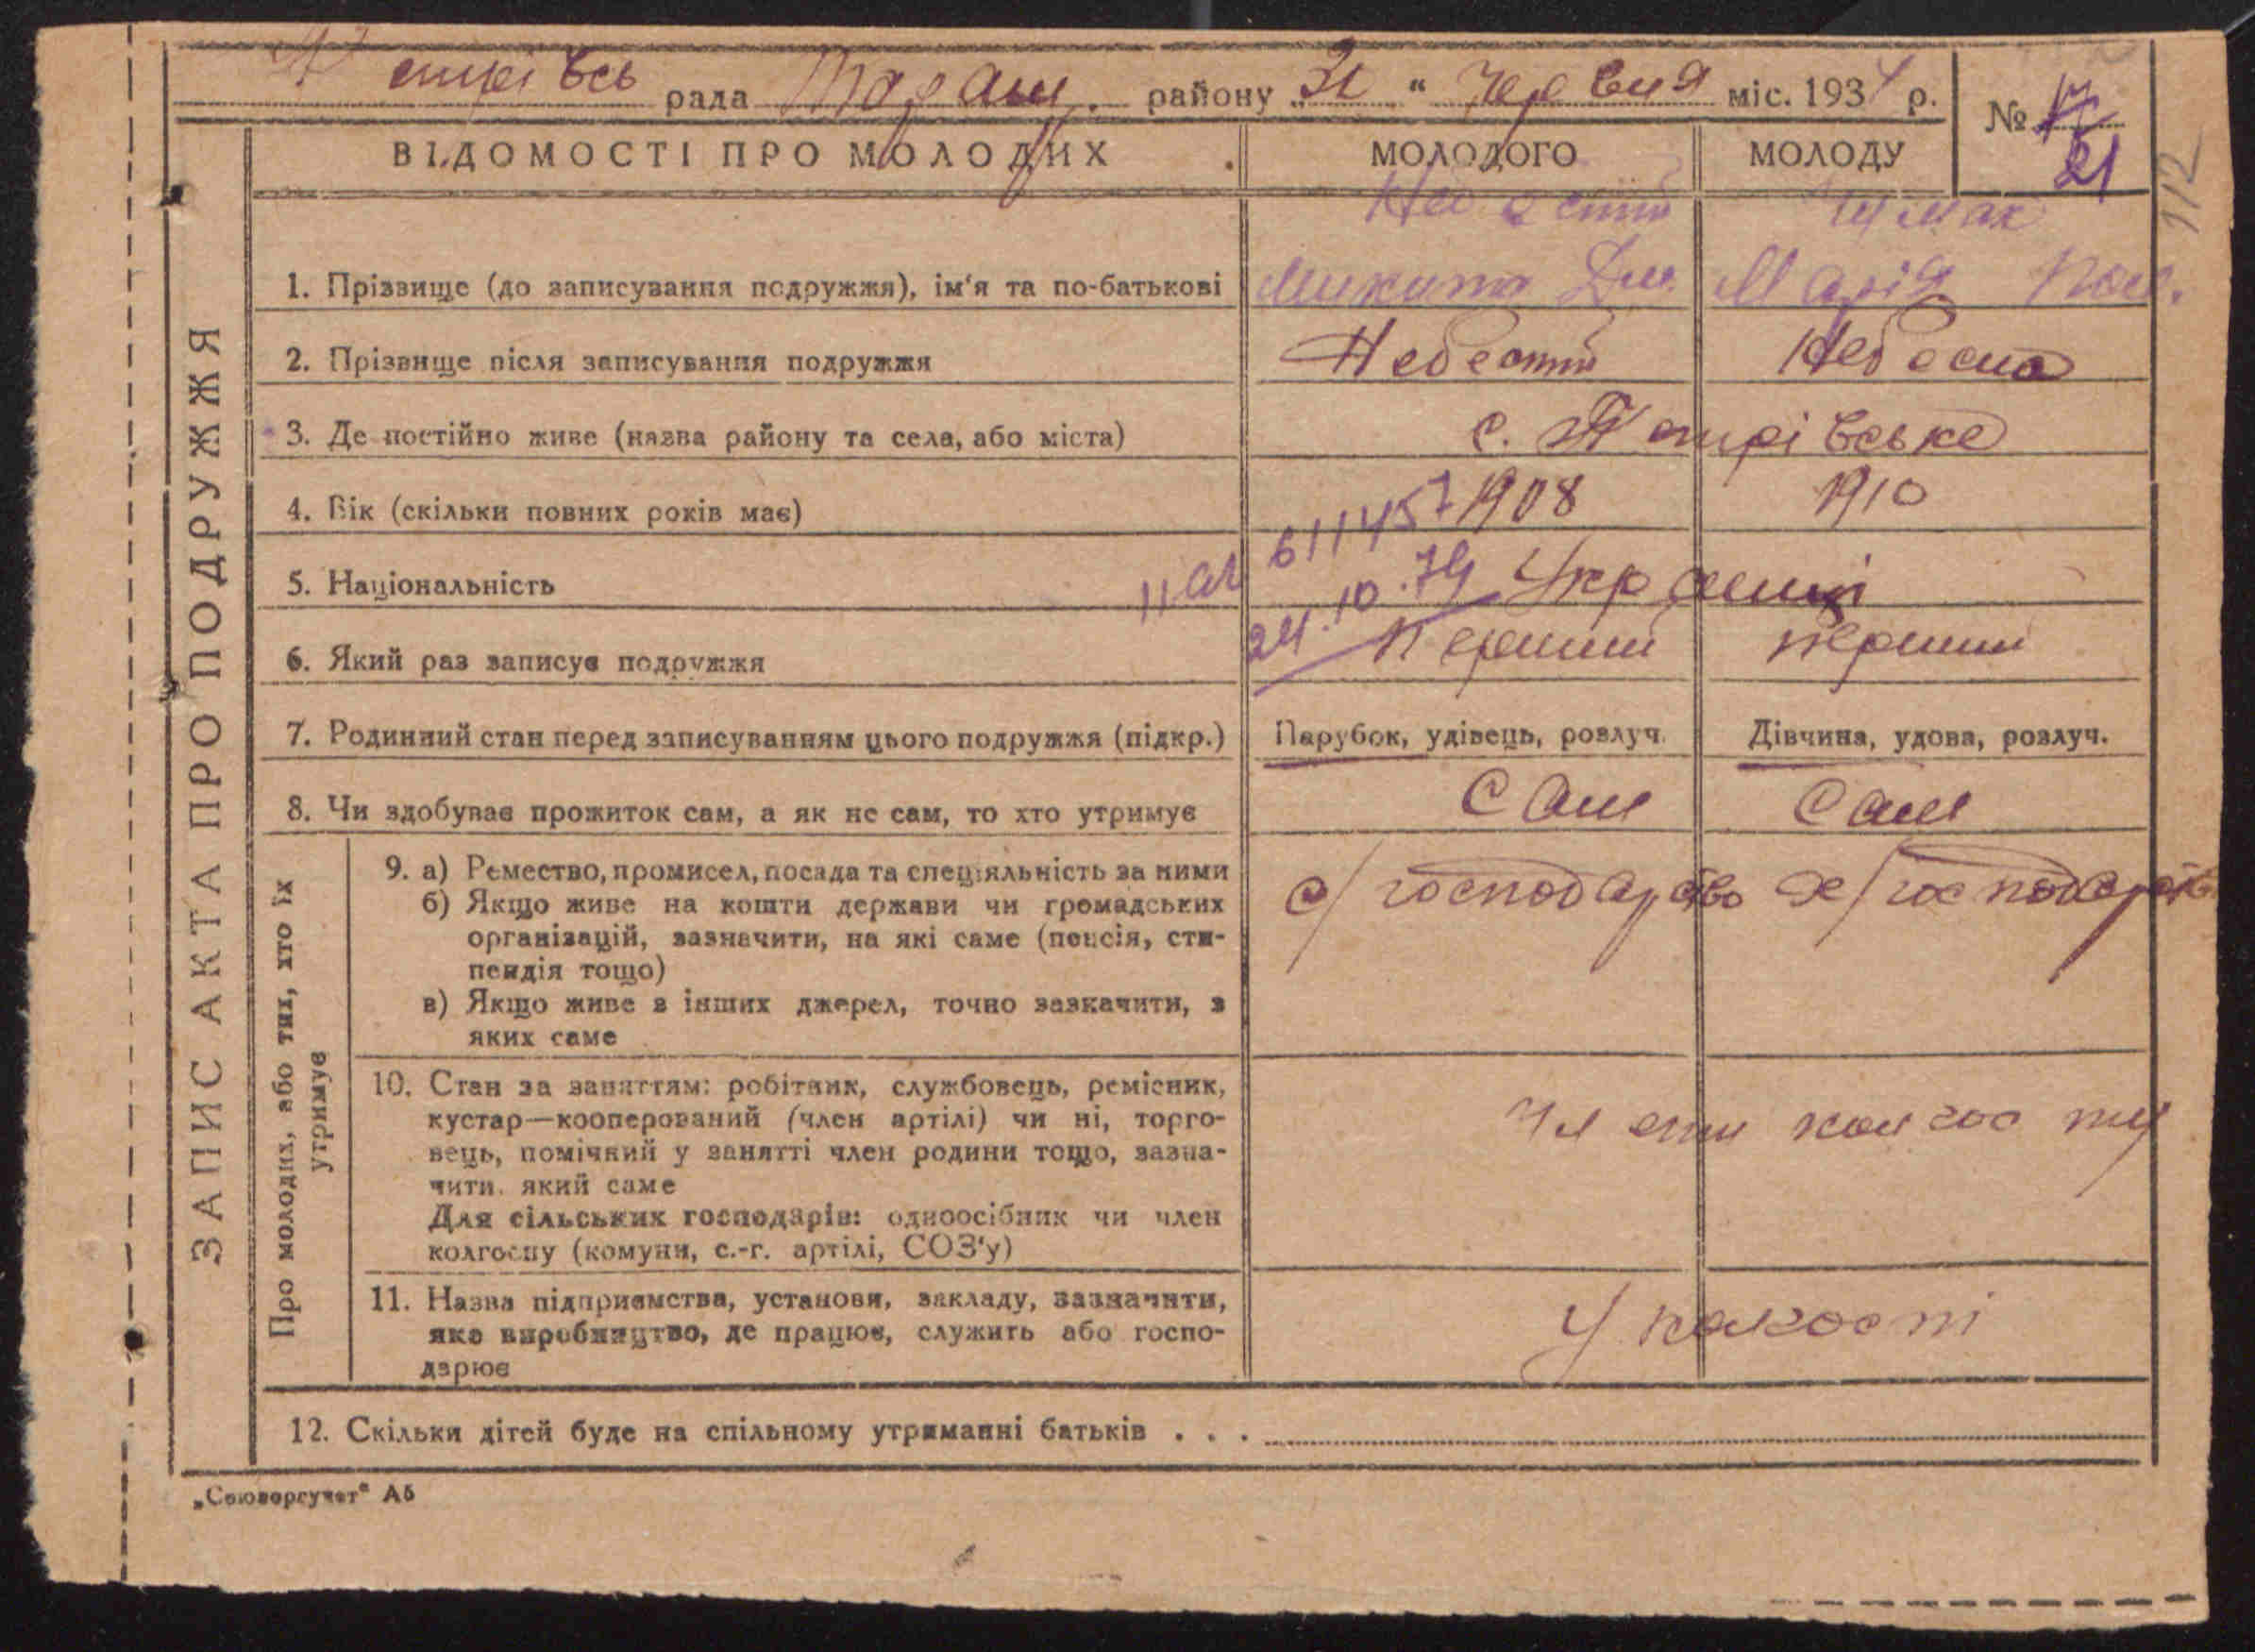 рада Таращ. району „ “ Червня міс. 1934 р.
№ 17
21
112
ВІДОМОСТІ ПРО МОЛОДИХ МОЛОДОГО МОЛОДУ
ЗАПИС АКТА ПРО ПОДРУЖЖЯ
1. Прізвище (до записування подружжя), ім‘я та по-батькові Микита Марія
2. Прізвище після записування подружжя Небесний Небесна
3. Де постійно живе (назва району та села, або міста) с. Петрівське
4. Вік (скільки повних років має) 1908 1910
611457
24.10.74
5. Національність Українці
6. Який раз записує подружжя перший перший
7. Родинний стан перед записуванням цього подружжя (підкр.) Парубок, удівець, розлуч. Дівчина, удова, розлуч.
8. Чи здобуває прожиток сам, а як не сам, то хто утримує сам сам
Про молодих, або тих, хто їх
утримує
9. а) Ремество, промисел, посада та спеціяльність за ними с/господарство с/господарство
б) Якщо живе на кошти держави чи громадських
організацій, зазначити, на які саме (пенсія, сти-
пендія тощо)
в) Якщо живе з інших джерел, точно зазначити, з
яких саме
10. Стан за заняттям: робітник, службовець, ремісник,
кустар—кооперований (член артілі) чи ні, торго-
вець, помічний у занятті член родини тощо, зазна-
чити, який саме
Для сільських господарів: одноосібник чи член
колгоспу (комуни, с.-г. артілі, СОЗ‘у)
члени колгоспу
11. Назва підприємства, установи, закладу, зазначити,
яке виробництво, де працює, служить або госпо-
дарює
У колгоспі
12. Скільки дітей буде на спільному утриманні батьків . . .
„Союзоргучет“ А5